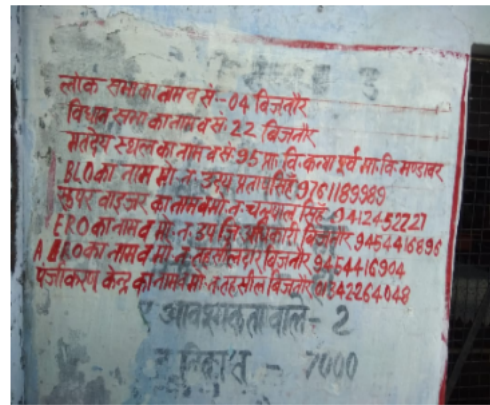 लोक सभा का नाम व सं:- 04 बिजनौर
विधान सभा का नाम व सं: 22 बिजनौर
मतदेय स्थल का नाम व सं: 95 मा. वि. कन्या पूर्व मा. वि. मण्डावर
BLO का नाम मो. न: उदय प्रताप सिंह 9761189989
सुपर वाइजर का नाम व मो. न: चन्द्रपाल सिंह 9412452221
ERO का नाम व मो. न: उप जि. अधिकारी बिजनौर 9454416896
AERO का नाम व मो. न: तहसीलदार बिजनौर 9454416904
पंजीकरण केन्द्र का नाम व मो. न. तहसील बिजनौर 01342264048
आवश्यकता वाले - 2
7000